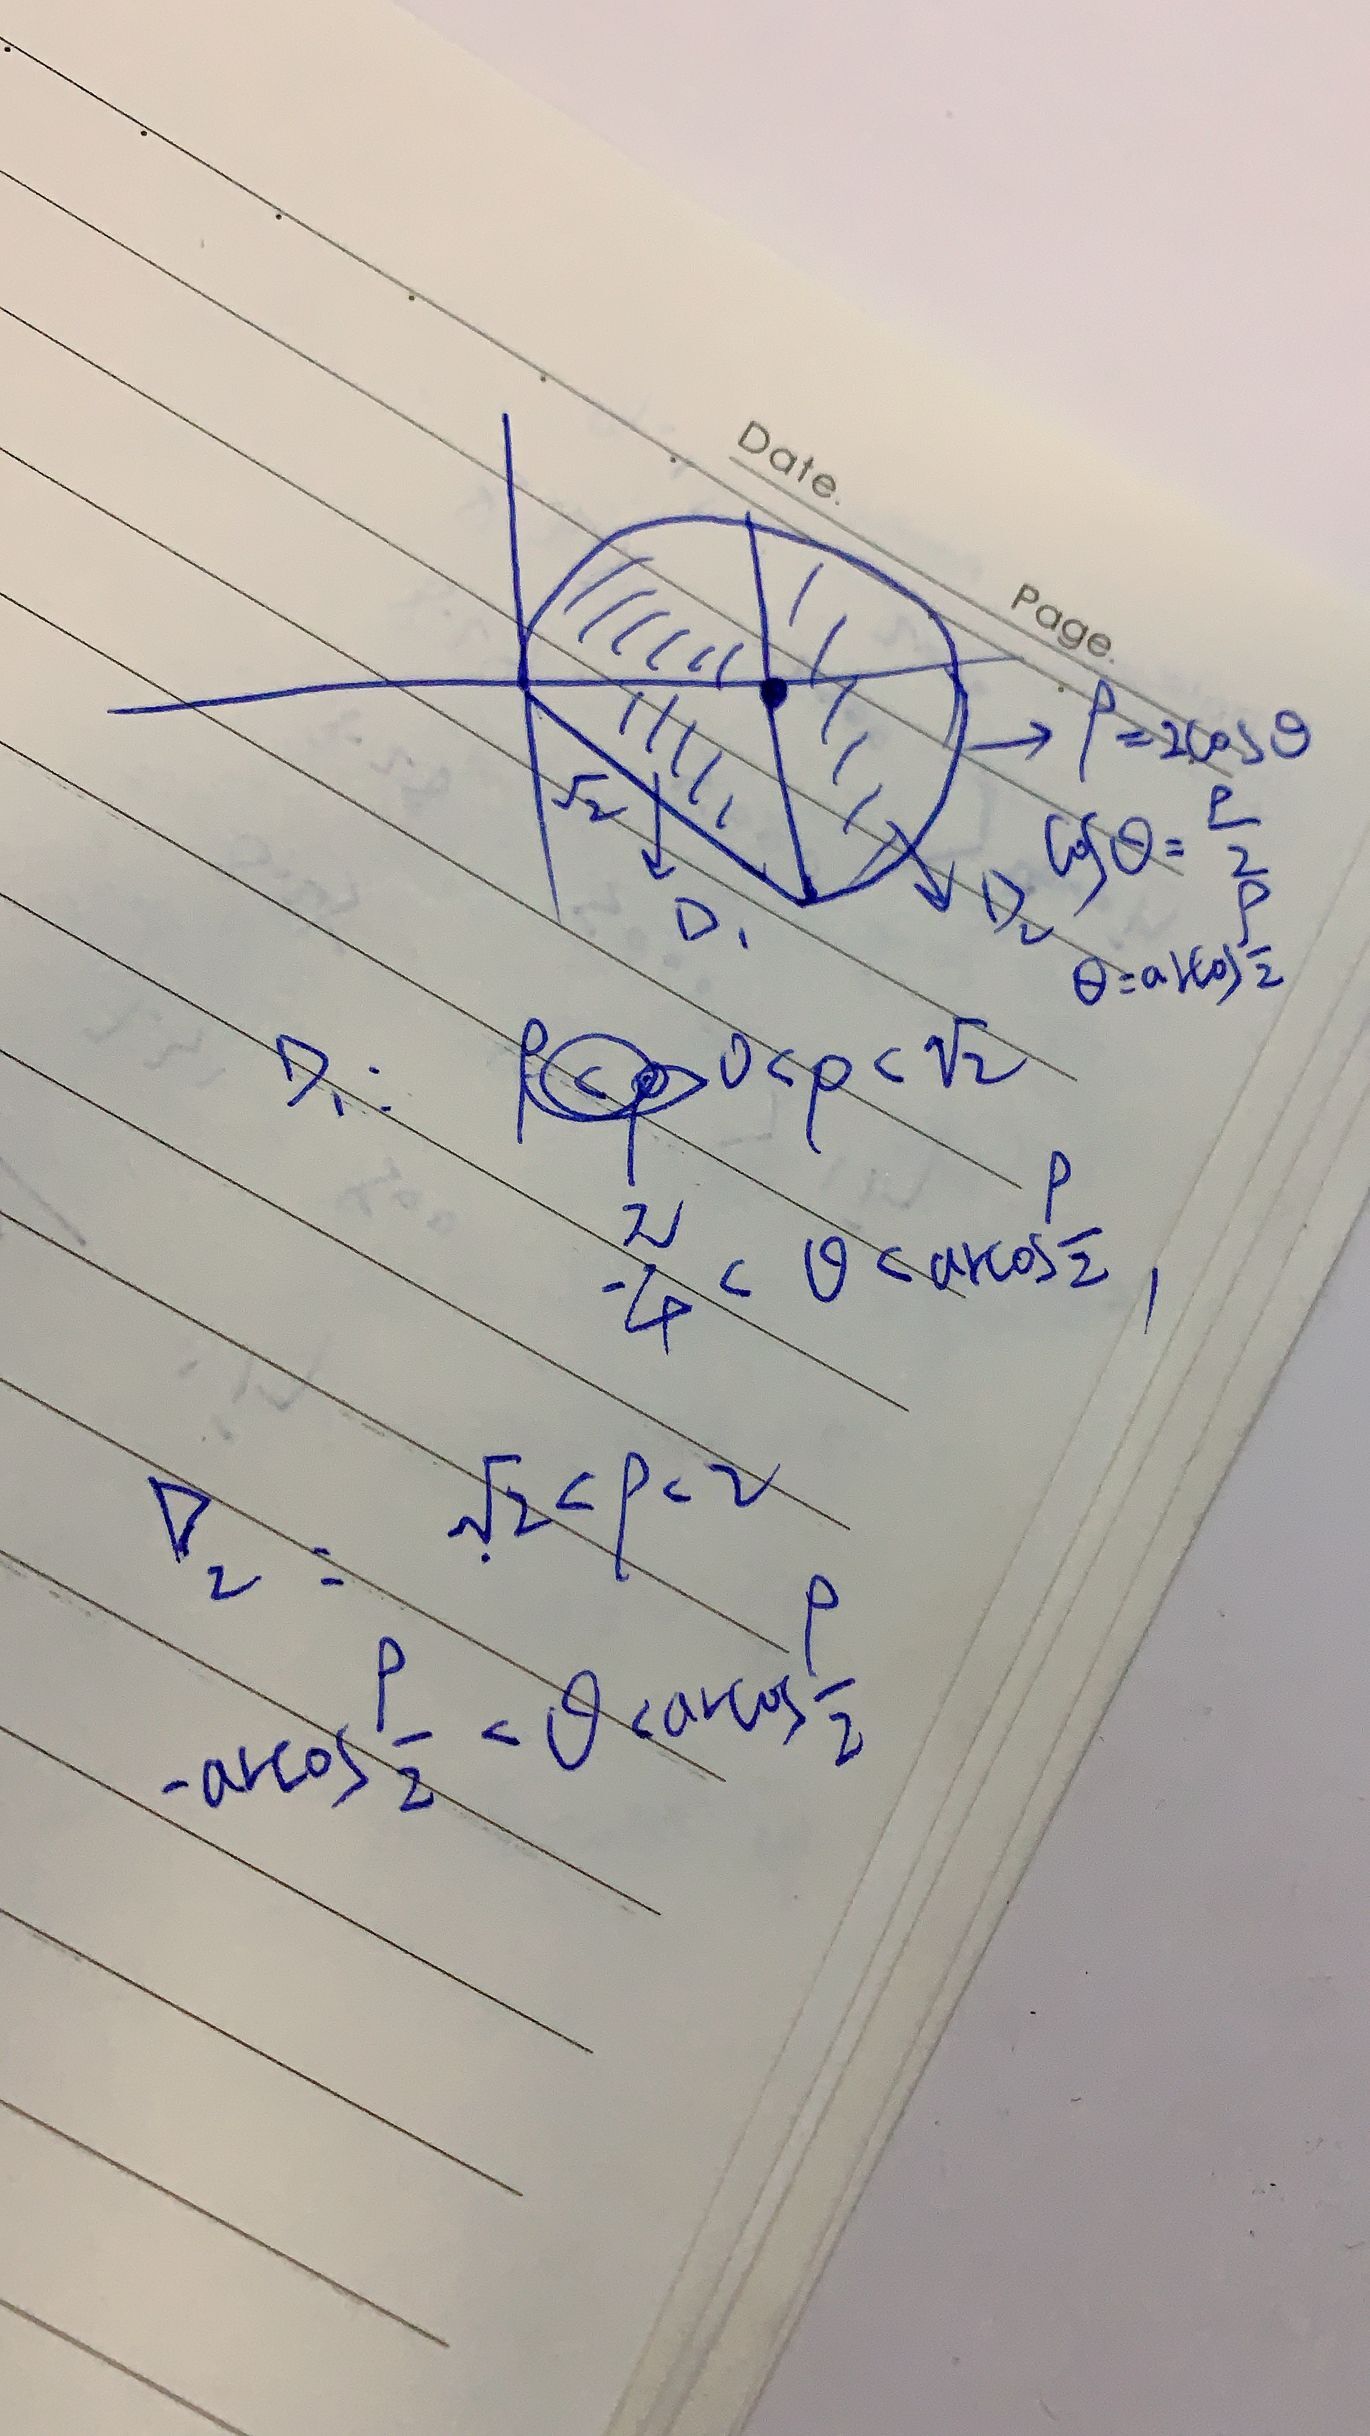 Date.
Page.
ρ=2cosθ
cosθ=ρ/2
θ=arccosρ/2
√2
D₁
D₂
D₁: 0<ρ<√2
-π/4<θ<arccosρ/2,
D₂: √2<ρ<2
-arccosρ/2<θ<arccosρ/2